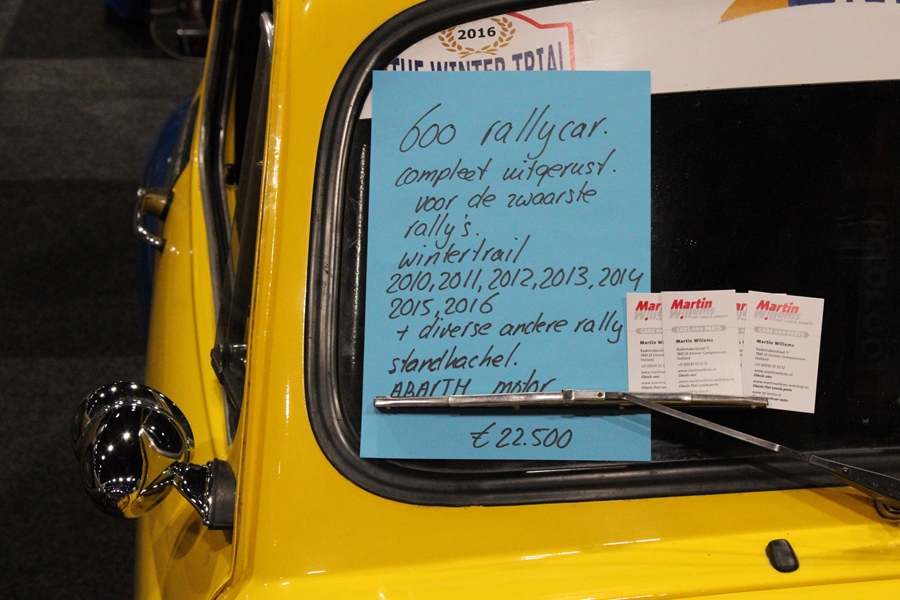 2016
THE WINTER TRIAL
600 rallycar.
compleet uitgerust.
voor de zwaarste
rally's.
wintertrail
2010, 2011, 2012, 2013, 2014
2015, 2016
+ diverse andere rally
standkachel.
ABARTH motor
€ 22.500
Martin
Willems
CARS AND PARTS
Martin Willems
Holland
Martin
Willems
CARS AND PARTS
Martin Willems
Holland